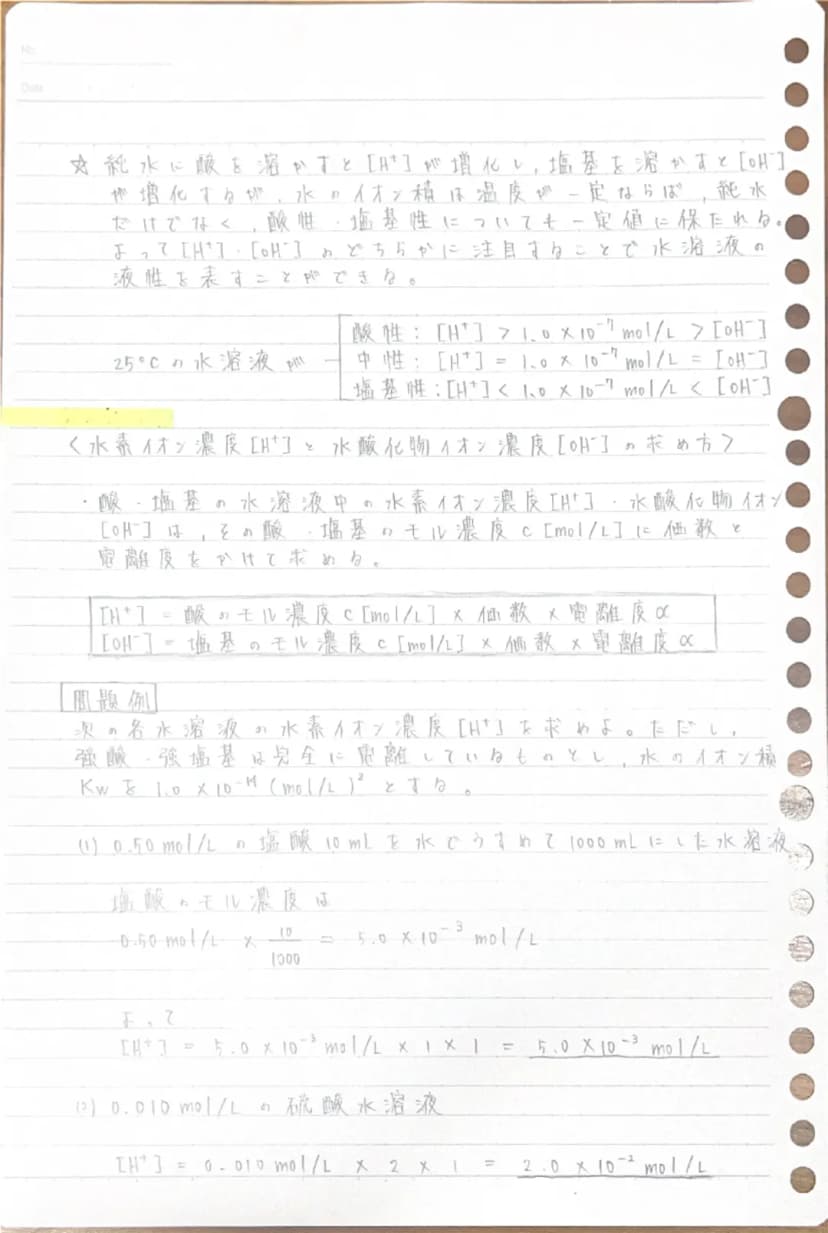 No.
Date
☆ 純水に酸を溶かすと[H⁺]が増化し、塩基を溶かすと[OH⁻]
が増化するが、水のイオン積は温度が一定ならば、純水
だけでなく、酸性・塩基性についても一定値に保たれる。
よって[H⁺]・[OH⁻]のどちらかに注目することで水溶液の
液性を表すことができる。
酸性：[H⁺] > 1.0 × 10⁻⁷ mol/L > [OH⁻]
25°Cの水溶液が 中性：[H⁺] = 1.0 × 10⁻⁷ mol/L = [OH⁻]
塩基性：[H⁺] < 1.0 × 10⁻⁷ mol/L < [OH⁻]
〈水素イオン濃度[H⁺]と水酸化物イオン濃度[OH⁻]の求め方〉
・酸・塩基の水溶液中の水素イオン濃度[H⁺]・水酸化物イオン
[OH⁻]は、その酸・塩基のモル濃度c[mol/L]に価数と
電離度をかけて求める。
[H⁺] = 酸のモル濃度c[mol/L] × 価数 × 電離度α
[OH⁻] = 塩基のモル濃度c[mol/L] × 価数 × 電離度α
問題例
次の各水溶液の水素イオン濃度[H⁺]を求めよ。ただし、
強酸・強塩基は完全に電離しているものとし、水のイオン積
Kwを1.0 × 10⁻¹⁴ (mol/L)²とする。
(1) 0.50 mol/Lの塩酸10mLを水でうすめて1000mLにした水溶液
塩酸のモル濃度は
0.50 mol/L × 10/1000 = 5.0 × 10⁻³ mol/L
よって
[H⁺] = 5.0 × 10⁻³ mol/L × 1 × 1 = 5.0 × 10⁻³ mol/L
(2) 0.010 mol/Lの硫酸水溶液
[H⁺] = 0.010 mol/L × 2 × 1 = 2.0 × 10⁻² mol/L